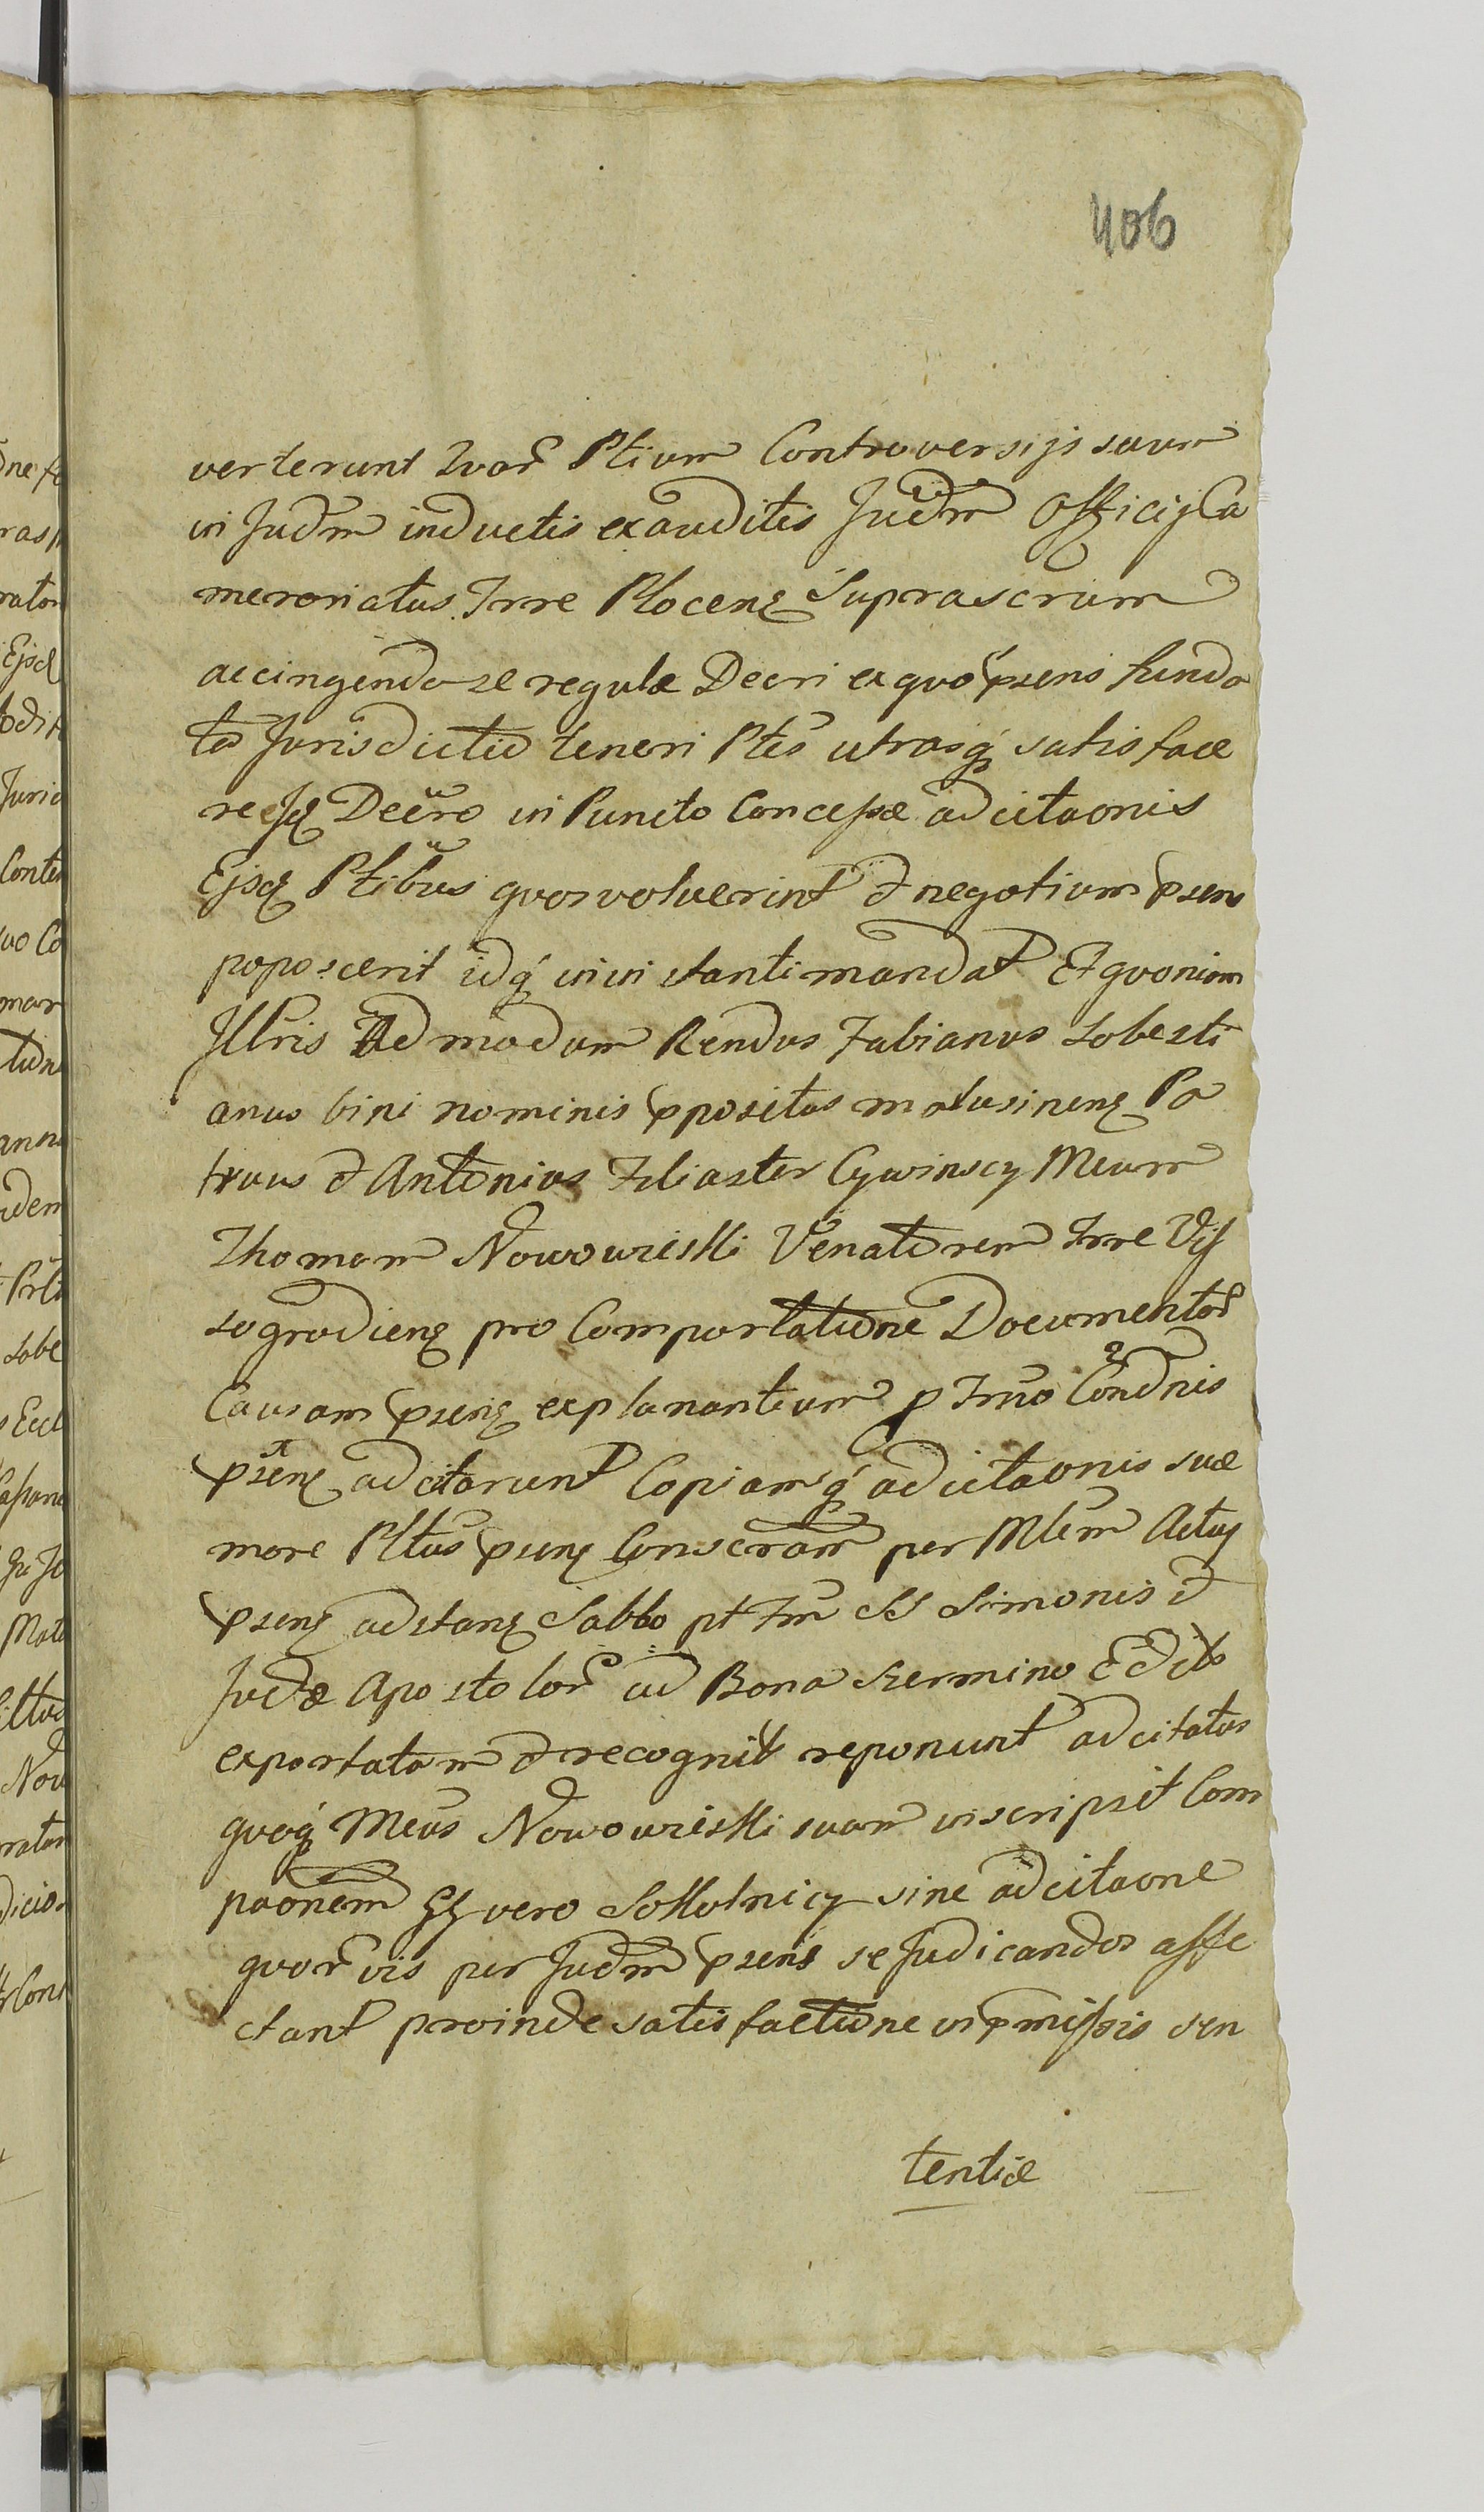 406
verterunt Quor Ptium Controversijs suum
in Judm inductis exauditis Judm Officij Ca
merariatus Trre Plocens Suprascrum
accingendo se regulæ Decri ex quo psens funda
ta Jurisdictio teneri Ptes utrasq satisface
re Ejsd Decro in Puncto Concessæ adcitaonis
Ejsd Ptibus quos voluerint et negotium psens
poposcerit idq in instanti mandat Et quoniam
Jllris Admodum Rendus Fabianus Sobesti
anus bini nominis ppositus malusinens Pa
truus et Antonius Filiaster Cywinscy Meum
Thomam Nowowieski Venatorem Trre Vis
sogrodiens pro Comportatione Documentor
Causam psens explanantium p Tmo Condnis
psens adcitarunt Copiamq adcitaonis suæ
more Pltus psens Conscram per Mlem Actus
psens adstans Sabbo pt Fm SS Simonis et
Judæ Apostolor ad Bona Szermino Edito
exportatam et recognit reponunt adcitatus
quoq Meus Nowowieski suam inscripsit Com
paonem GG vero Sokolnicy sine adcitaone
quorvis per Judm psens se Judicandos affe
ctant proinde satisfactione in pmissis sen
tentiæ